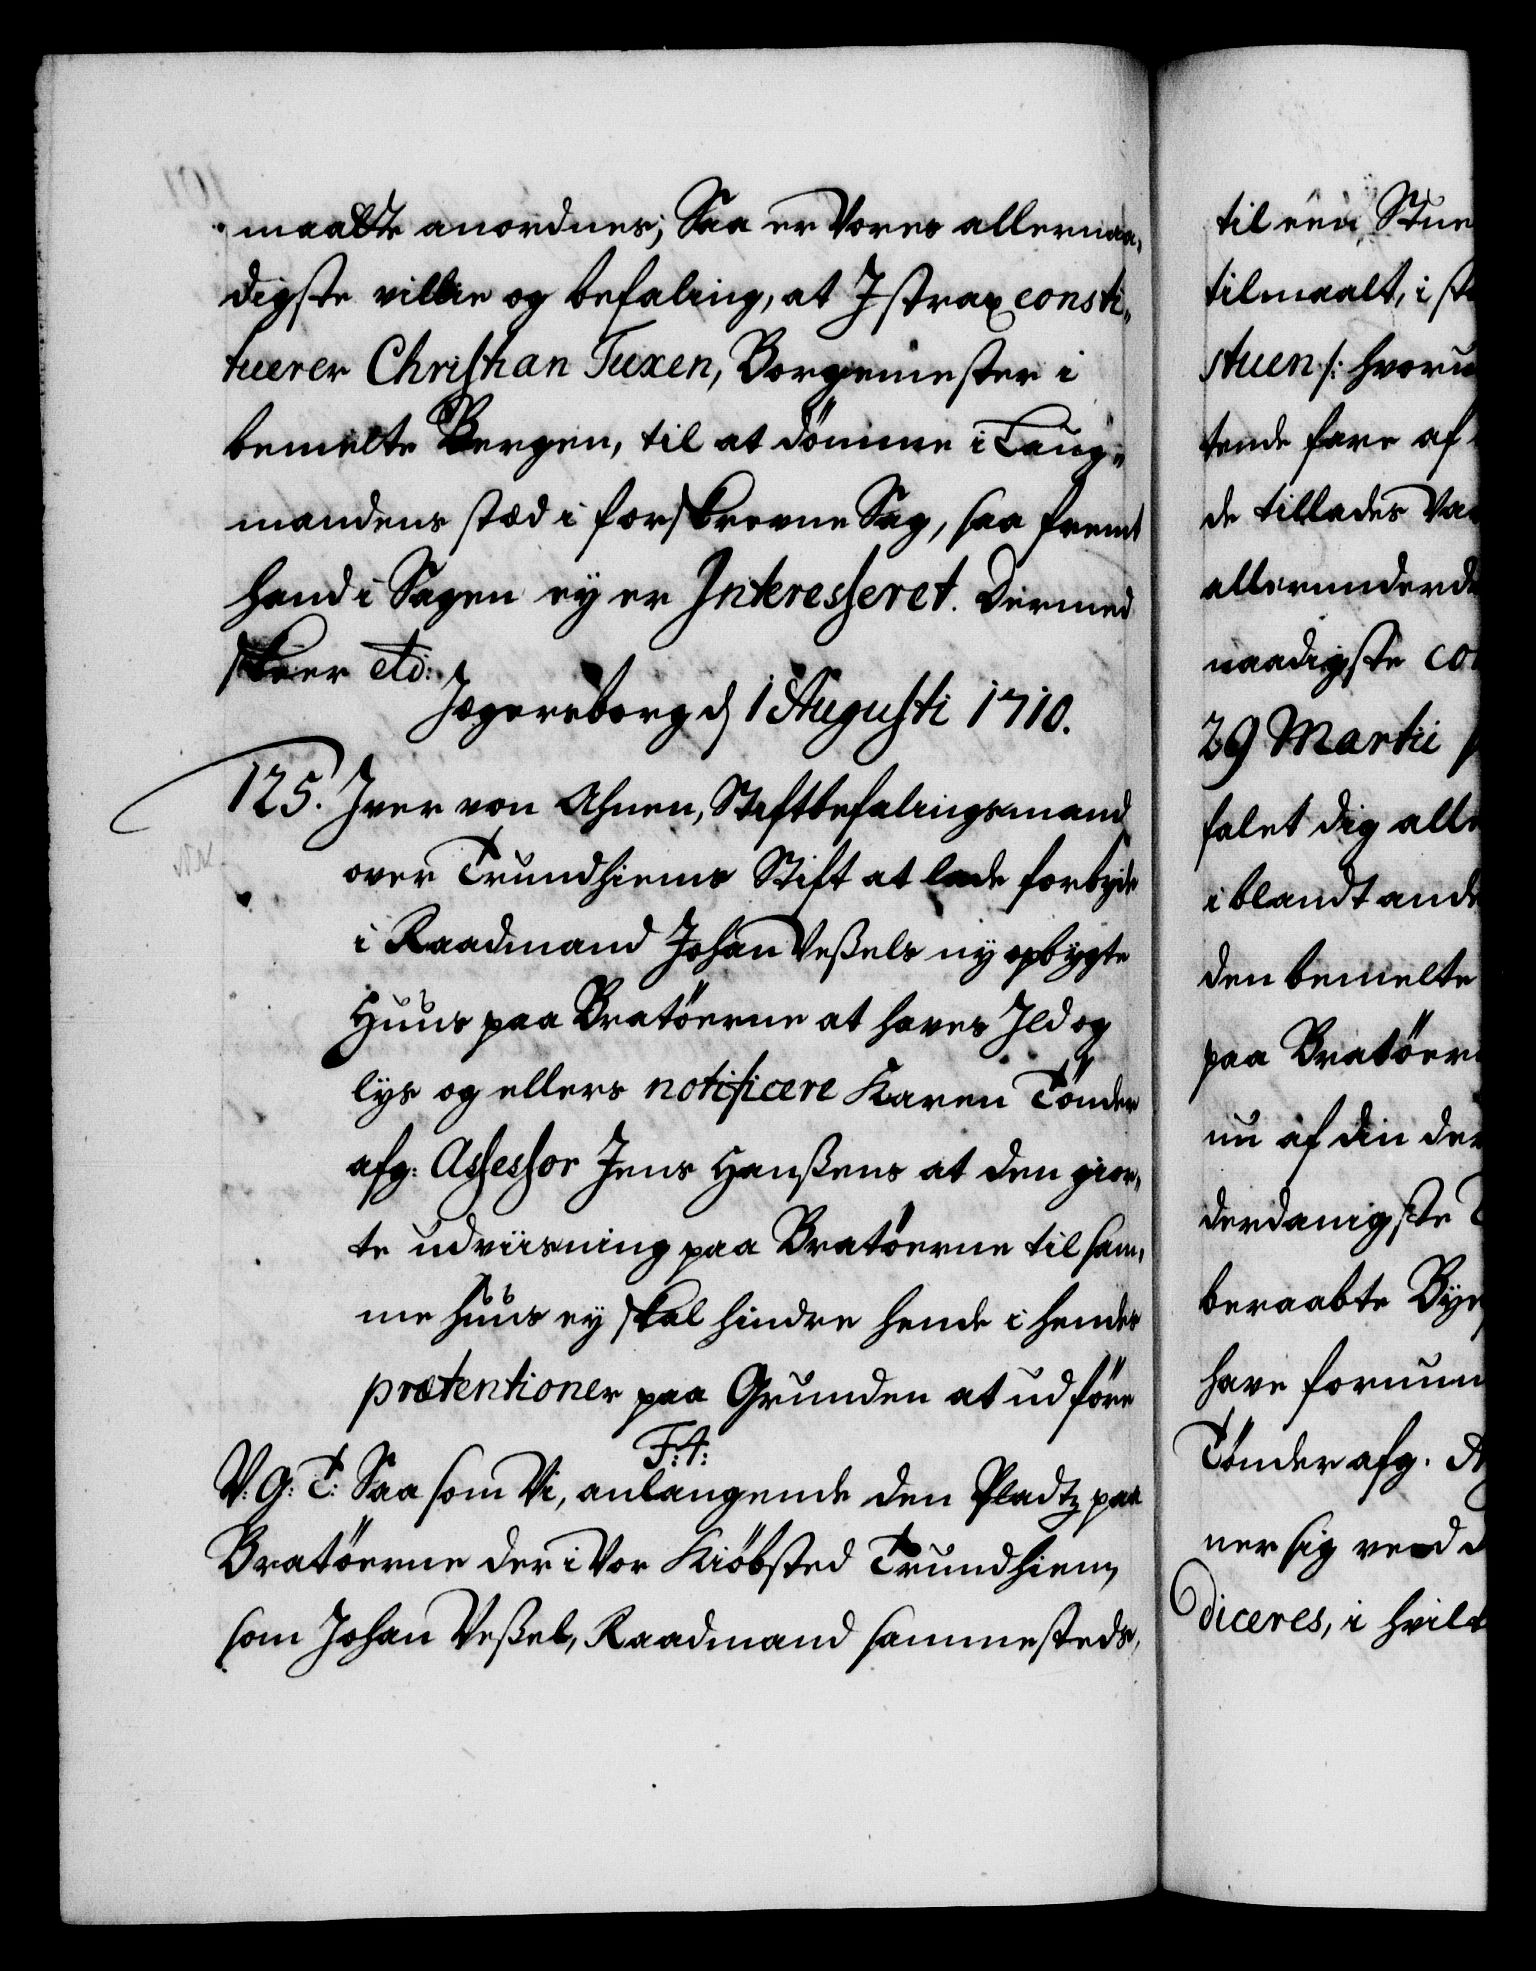 maatte anordnes; Saa er Vores allernaa„
digste villie og befaling, at I strax consti„
tuerer Christian Tuxen, Borgemester i
bemelte Bergen, til at dömme i Laug„
mandens stæd i forskrevne Sag, saa fremt
hand i Sagen ey er Interesseret. Dermed
skeer etc:
Jægersborg d 1 Augusti 1710.
125. Iver von Ahnen, Stiftbefalingsmand
over Trundhiems Stift at lade forbyde
i Raadmand Johan Veßels ny opbygte
Huus paa Bratöerne at haves Ild og
lys og ellers notificere Karen Tönder
afg: Assessor Jens Hanßens at den gior„
te udviisning paa Bratöerne til sam„
me huus ey skal hindre hende i hendes
prætentioner paa Grunden at udföre
F: 4:
V: G: T: Saa som Vi, anlangende den Pladtz paa
Bratöerne der i Vor Kiöbsted Trundhiem,
som Johan Veßel, Raadmand sammesteds,
til een Stue
tilmaalt, i
stuen /:
tende fare af
de tillades
naadigste
29 Martii
falet dig
i blandt
den bemelte
paa
nu af din
derdanigste
beraabte
have
Tönder afg.
ner sig ved
diceres, i